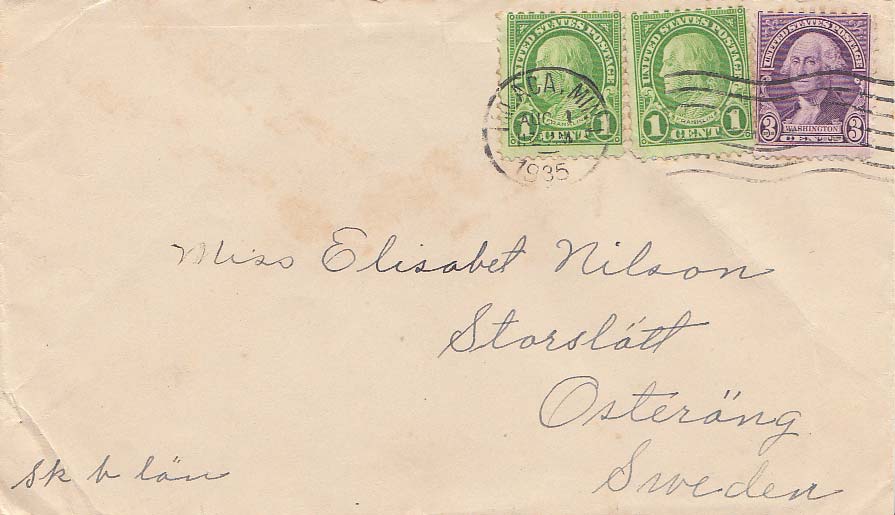 UNITED STATES POSTAGE
FRANKLIN
1 CENT 1
UNITED STATES POSTAGE
FRANKLIN
1 CENT 1
UNITED STATES POSTAGE
WASHINGTON
3 CENTS 3
AUG 1
1935
Miss Elisabet Nilson
Storslått
Osteräng
Sweden
sk b län